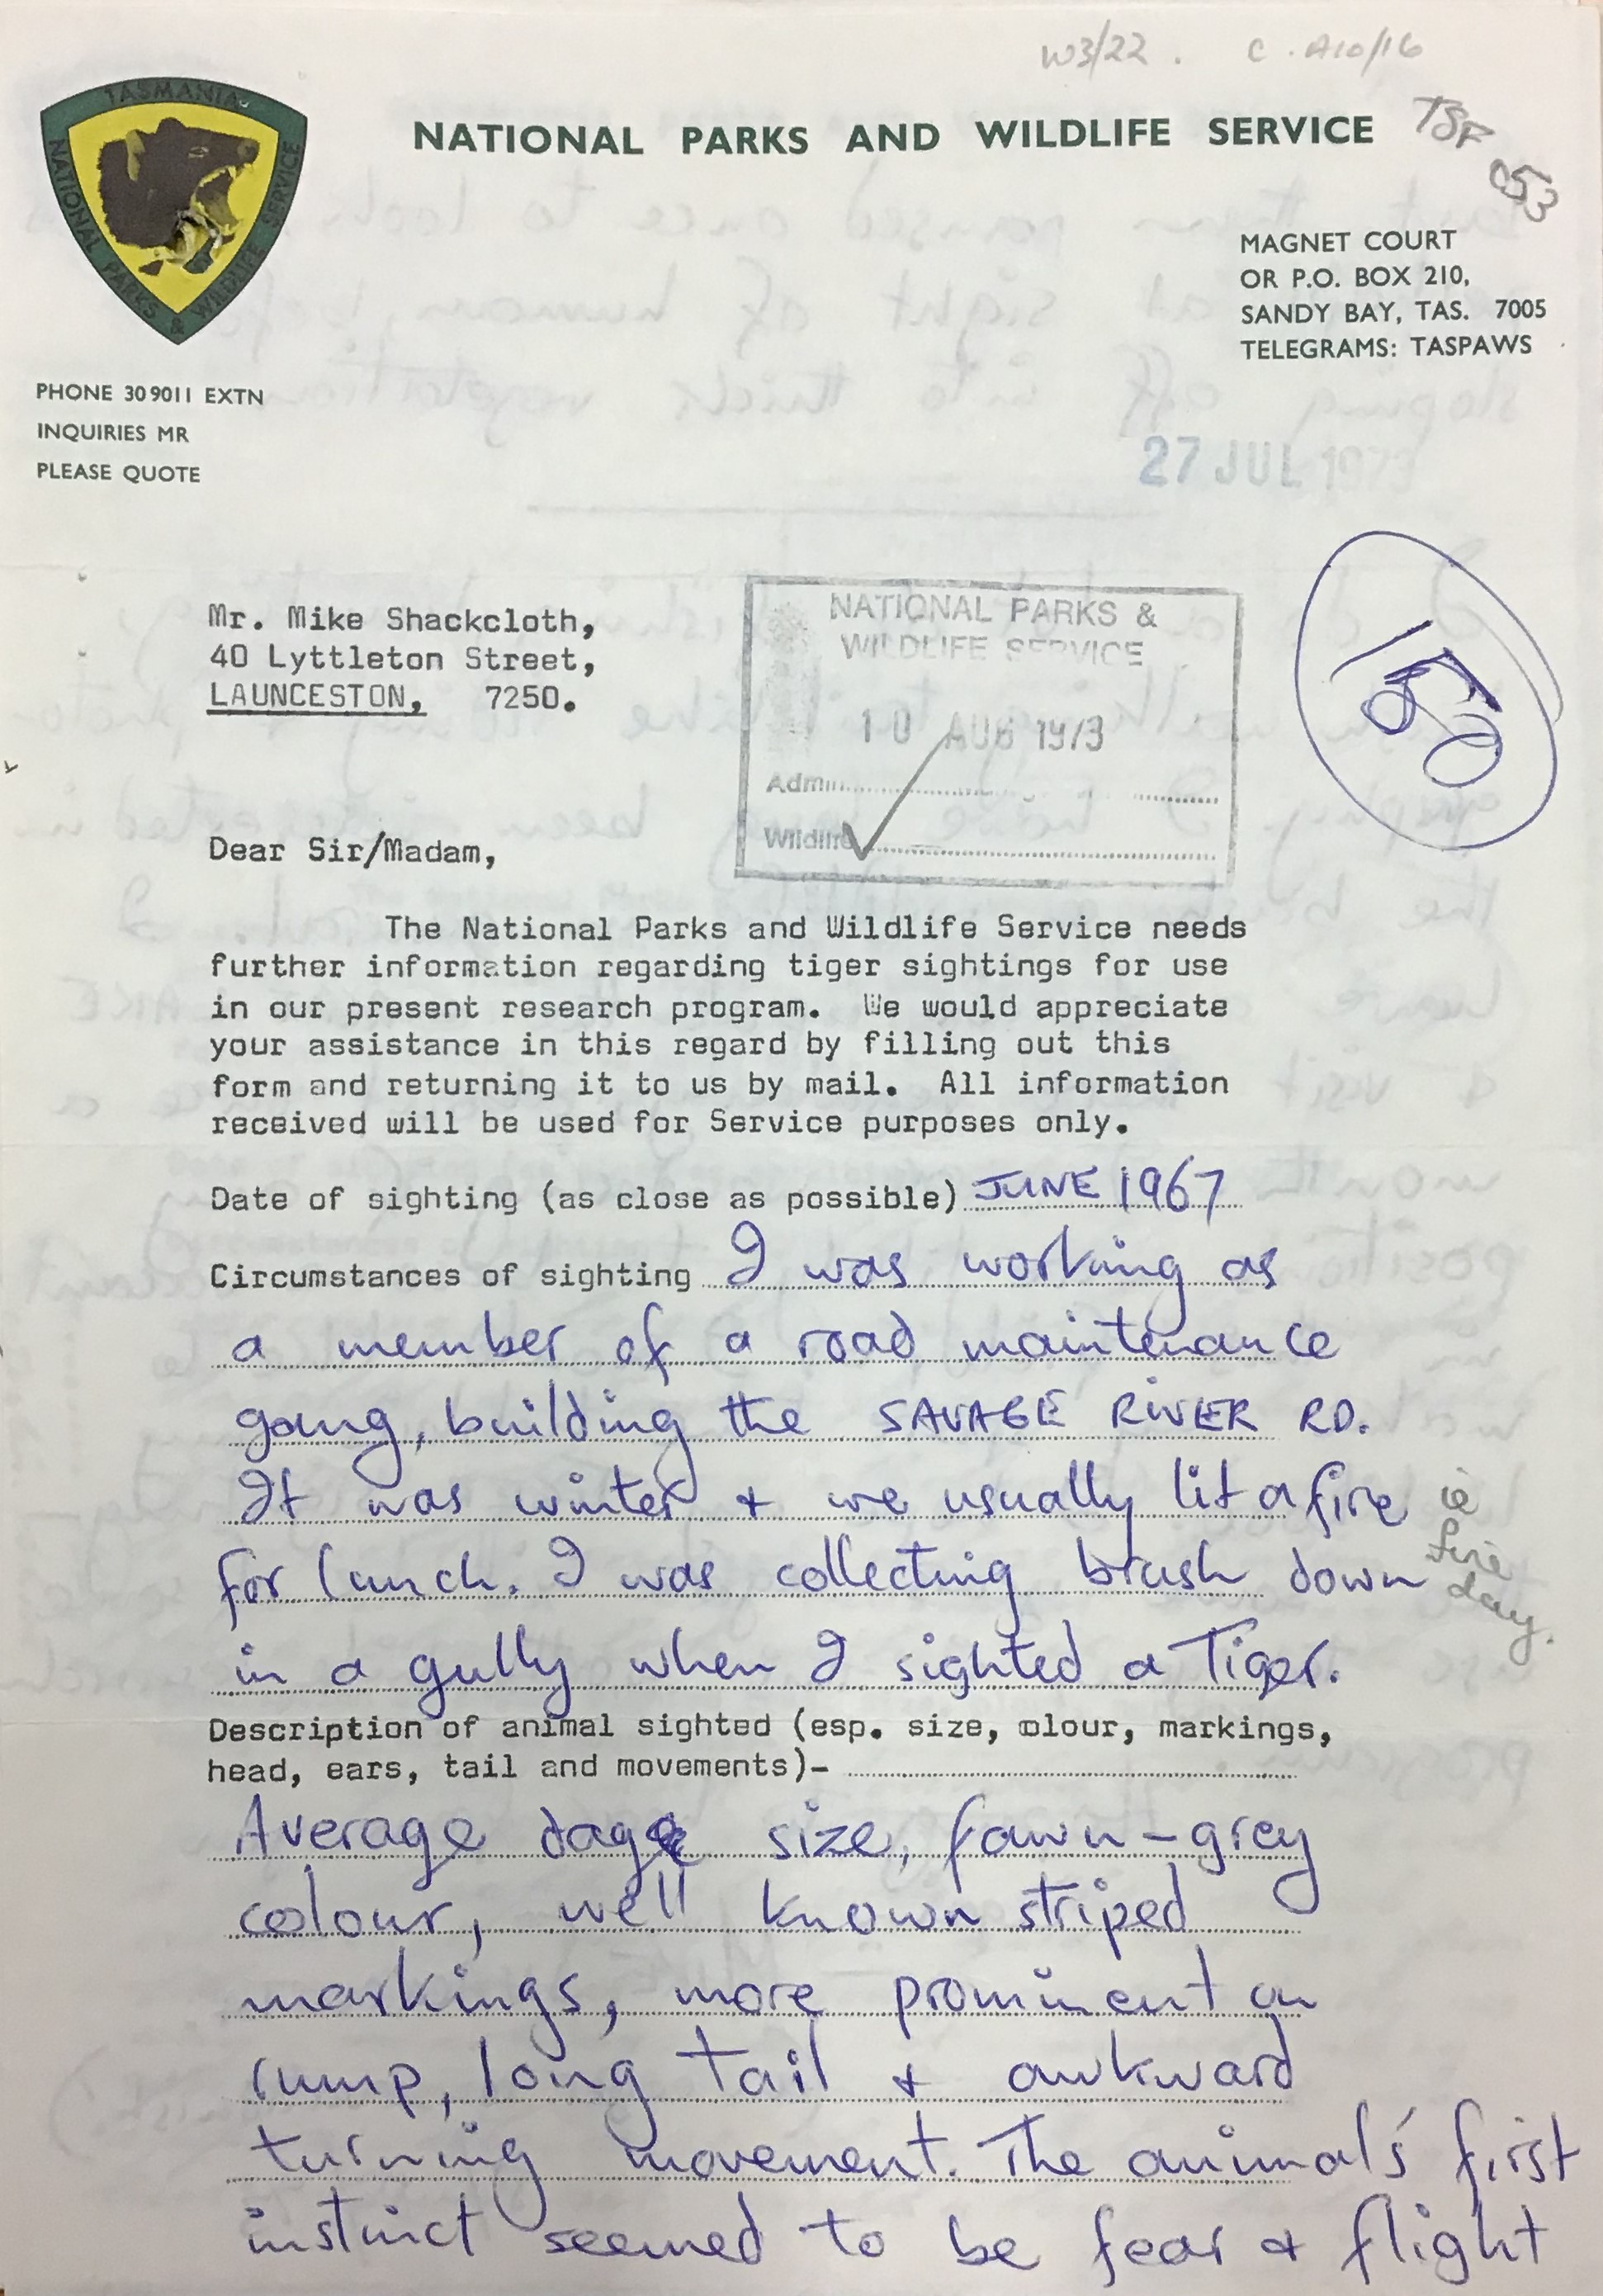 W3/22 . C . A10/16
TASMANIA
NATIONAL PARKS & WILDLIFE SERVICE
NATIONAL PARKS AND WILDLIFE SERVICE
TSF
053
MAGNET COURT
OR P.O. BOX 210,
SANDY BAY, TAS. 7005
TELEGRAMS: TASPAWS
PHONE 30 9011 EXTN
INQUIRIES MR
PLEASE QUOTE
27 JUL 1973
Mr. Mike Shackcloth,
40 Lyttleton Street,
LAUNCESTON, 7250.
NATIONAL PARKS &
WILDLIFE SERVICE
10 AUG 1973
Admin
Wildlife
150
Dear Sir/Madam,
The National Parks and Wildlife Service needs
further information regarding tiger sightings for use
in our present research program. We would appreciate
your assistance in this regard by filling out this
form and returning it to us by mail. All information
received will be used for Service purposes only.
Date of sighting (as close as possible) JUNE 1967
Circumstances of sighting I was working as
a member of a road maintenance
gang, building the SAVAGE RIVER RD.
It was winter + we usually lit a fire
ie
fine
day.
for lunch. I was collecting brush down
in a gully when I sighted a Tiger.
Description of animal sighted (esp. size, colour, markings,
head, ears, tail and movements)-
Average dog size, fawn-grey
colour, well known striped
markings, more prominent on
rump, long tail + awkward
turning movement. The animal's first
instinct seemed to be fear + flight